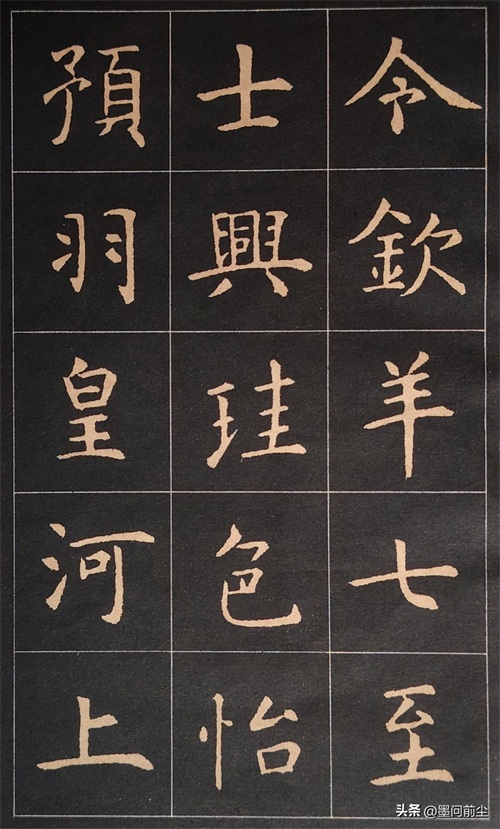 令欽羊七至
士興珪色怡
預羽皇河上
头条 @墨问前尘